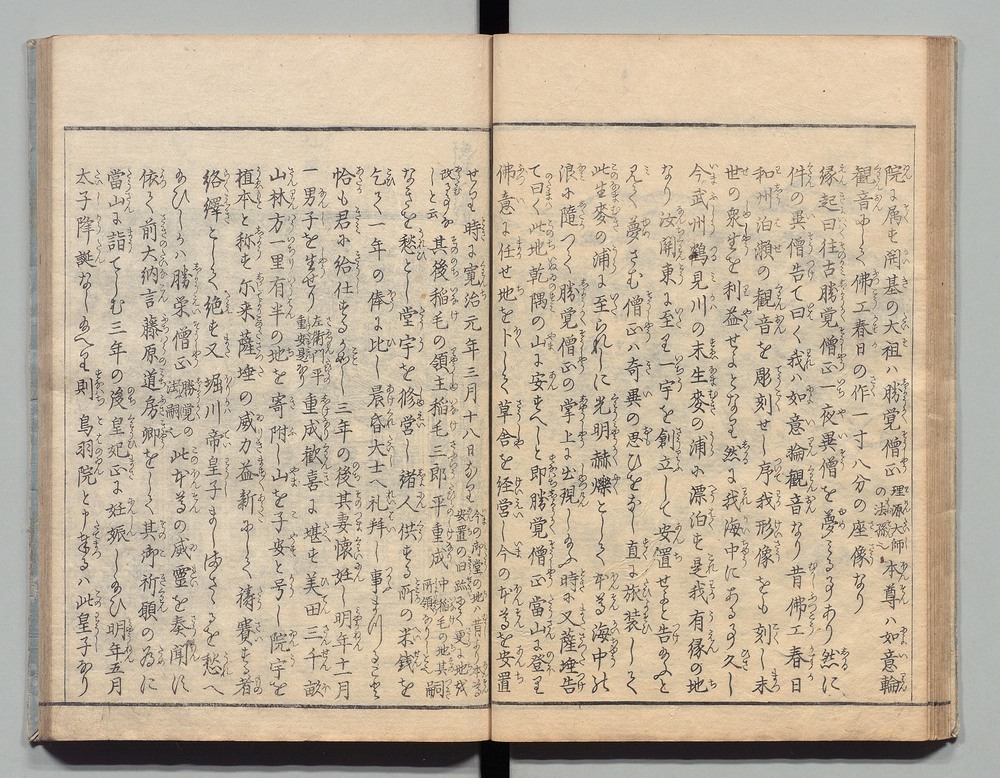 院に属す開基の大祖ハ勝覚僧正理源大師の法孫本尊ハ如意輪
観音にして佛工春日の作一寸八分の座像なり
縁起曰往古勝覚僧正一夜異僧を夢る事あり然に
件の異僧告て曰く我ハ如意輪観音なり昔佛工春日
和州泊瀬の観音を彫刻せし序我形像をも刻し末
世の衆生を利益せよとなり然に我海中にある事久し
今武州鶴見川の末生麥の浦に漂泊す是我有縁の地
なり汝関東に至り一宇を創立して安置せよと告給ふと
見て夢さむ僧正ハ奇異の思ひをなし直に旅装して
此生麥の浦に至られしに光明赫爍として本尊海中の
浪に随つて勝覚僧正の掌上に出現し給ふ時に又薩埵告
て曰く此地乾隅の山に安すへしと即勝覚僧正當山に登り
佛意に任せ地を卜して草舎を経営し今の本尊を安置
せり時に寛治元年三月十八日なり今の御堂の地ハ昔より本尊安置の旧跡にて更に地を
改さると云其後稲毛の領主稲毛三郎平重成中稲毛の地其所領なり嗣
なきを愁とし堂宇を修営し諸人供する所の米銭を
乞て一年の俸に比し晨昏大士へ礼拝し事まつりことを
恰も君に給仕するかことし三年の後其妻懐妊し明年十一月
一男子を生せり左衛門平重安是なり重成歓喜に堪す美田三千畝
山林方一里有半の地を寄附し山を子安と号し院宇を
植本と称す尓来薩埵の威力益新にして祷賽する者
絡繹として絶す又堀川帝皇子ましまさゝるを愁へ
給ひしか勝栄僧正勝覚の法嗣此本尊の威靈を奏聞に
依て前大納言藤原道房卿をして其御祈願の為に
當山に詣てしむ三年の後皇妃正に妊娠し給ひ明年五月
太子降誕なし給へり則鳥羽院と申奉るハ此皇子なり